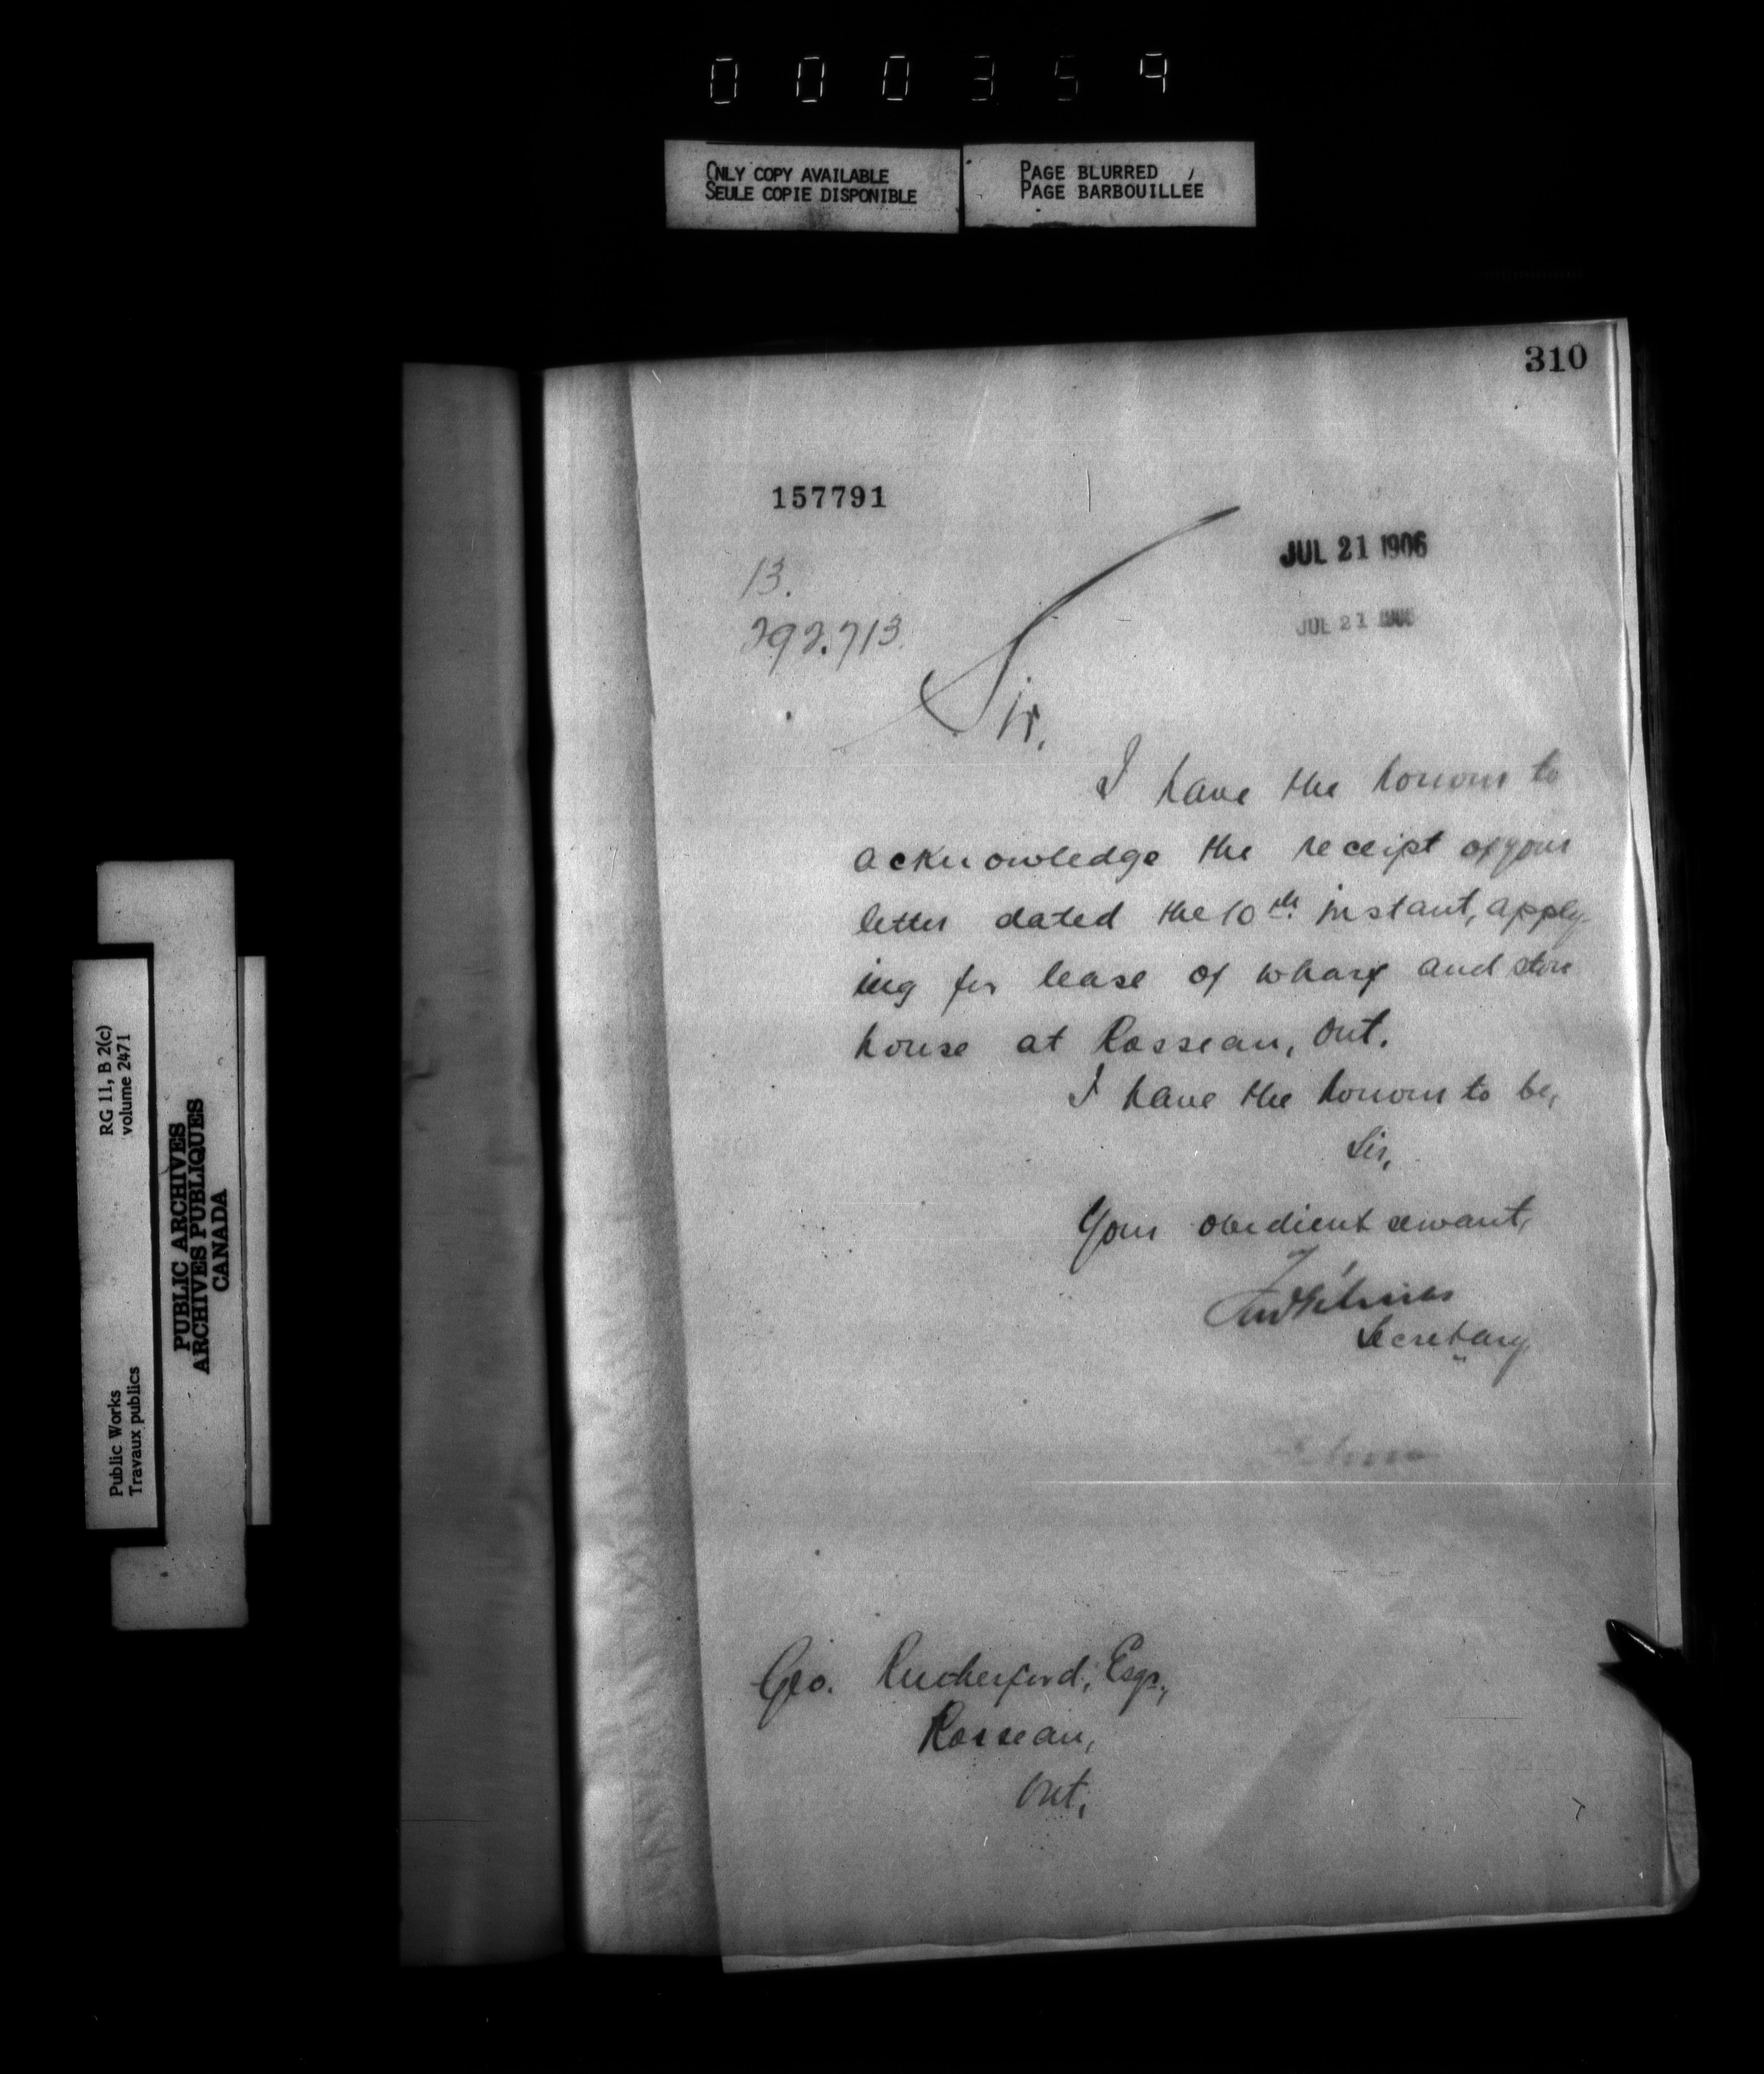 000359
ONLY COPY AVAILABLE
SEULE COPIE DISPONIBLE
PAGE BLURRED
PAGE BARBOUILLEE
310
157791
JUL 21 1906
JUL 21 1906
13.
292.713.
Sir,
I have the honour to
acknowledge the receipt of your
letter dated the 10th instant, apply-
ing for lease of wharf and store
house at Rosseau, Ont.
I have the honour to be,
Sir,
Your obedient servant,
Secretary
Geo. Rutherford, Esqr.,
Rosseau,
Ont.
RG 11, B 2(c)
volume 2471
Public Works
Travaux publics
PUBLIC ARCHIVES
ARCHIVES PUBLIQUES
CANADA